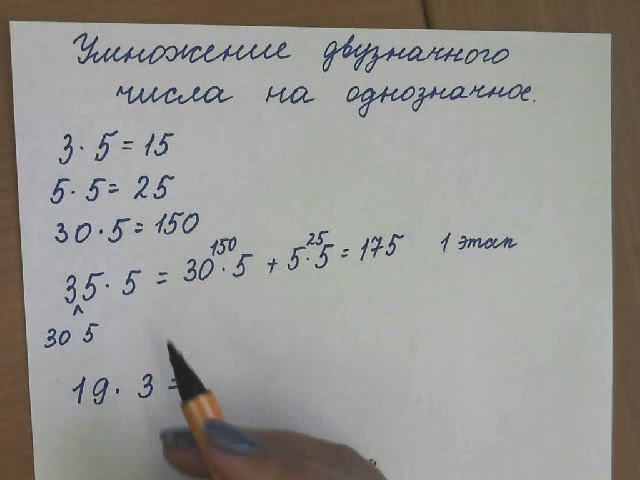 Умножение двузначного
числа на однозначное.
3 · 5 = 15
5 · 5 = 25
30 · 5 = 150
150 25
35 · 5 = 30 · 5 + 5 · 5 = 175 1 этап
^
30 5
19 · 3 =